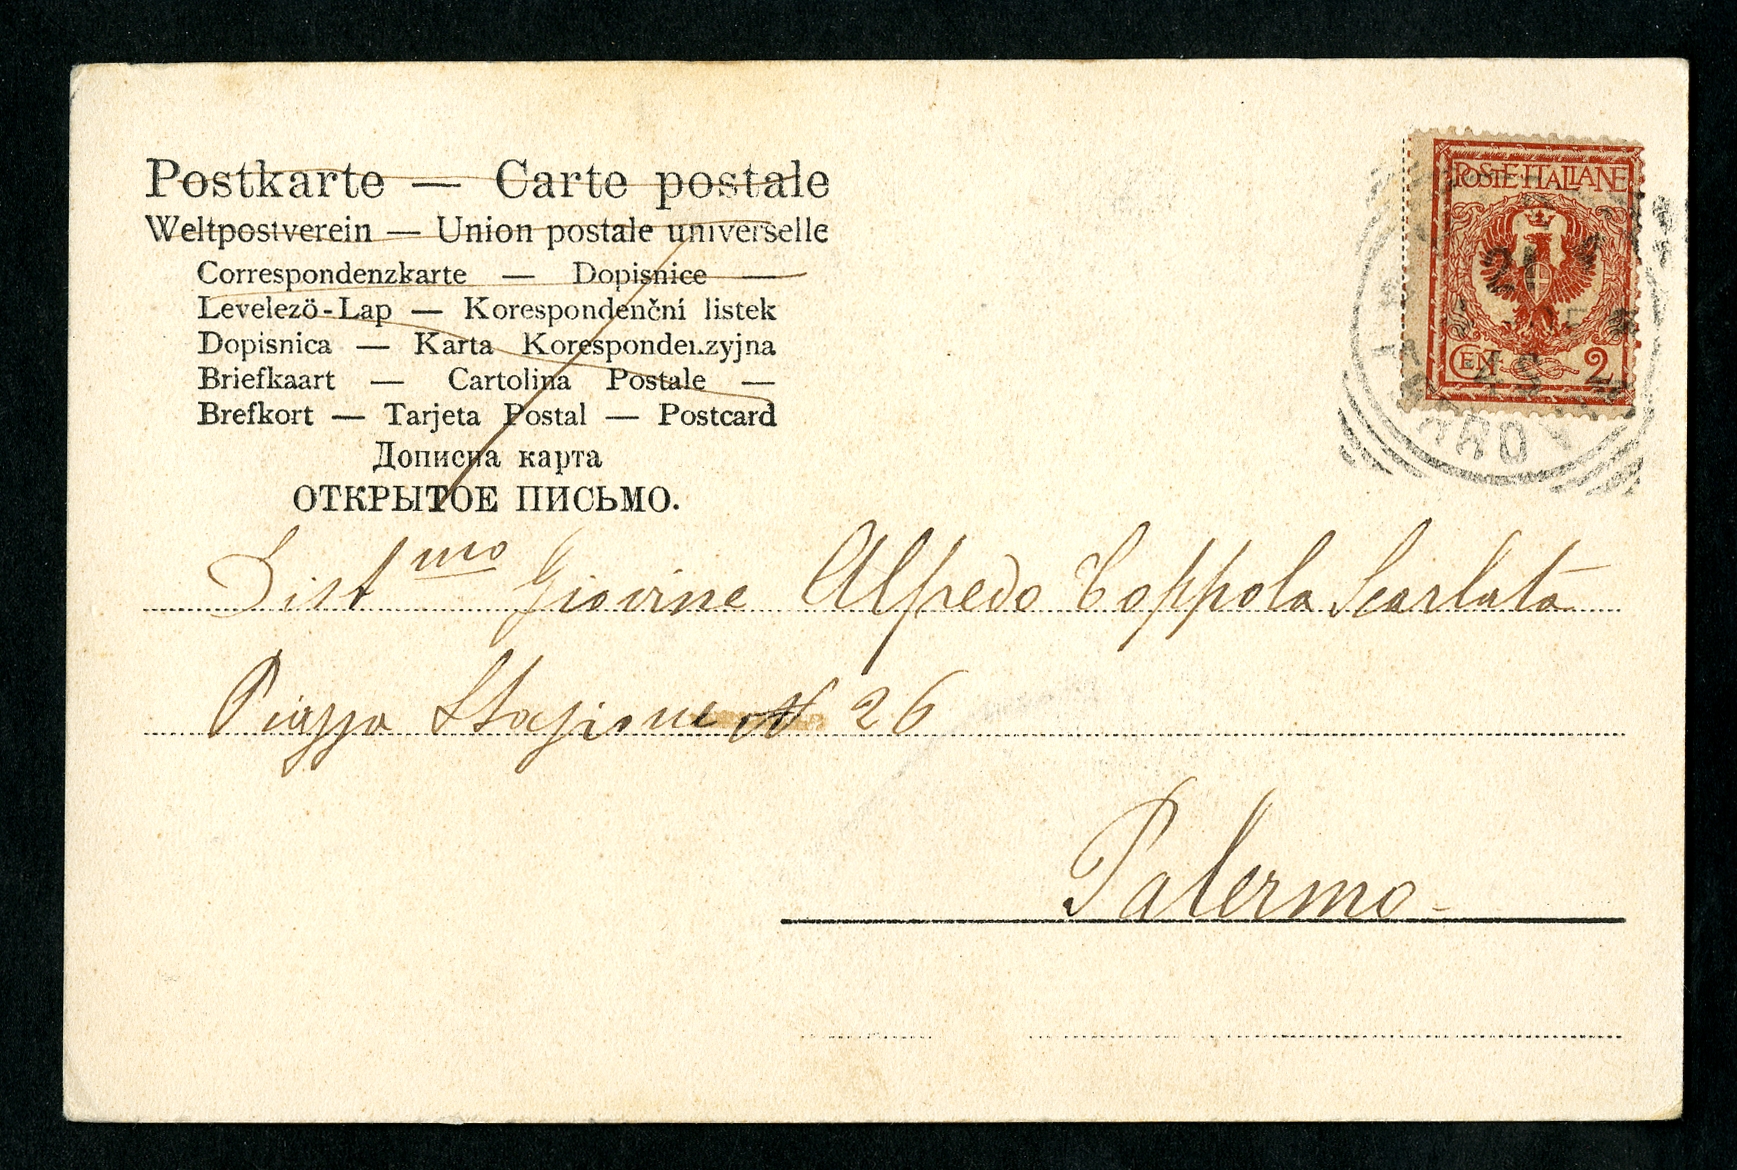 Postkarte — Carte postale
Weltpostverein — Union postale universelle
Correspondenzkarte — Dopisnice —
Levelező-Lap — Korespondenční listek
Dopisnica — Karta Korespondenzyjna
Briefkaart — Cartolina Postale —
Brefkort — Tarjeta Postal — Postcard
Дописна карта
ОТКРЫТОЕ ПИСЬМО.
POSTE ITALIANE
21
CEN 2
Dist mo Giovine Alfredo Coppola Scarlata
Piazza Stazione N 26
Palermo